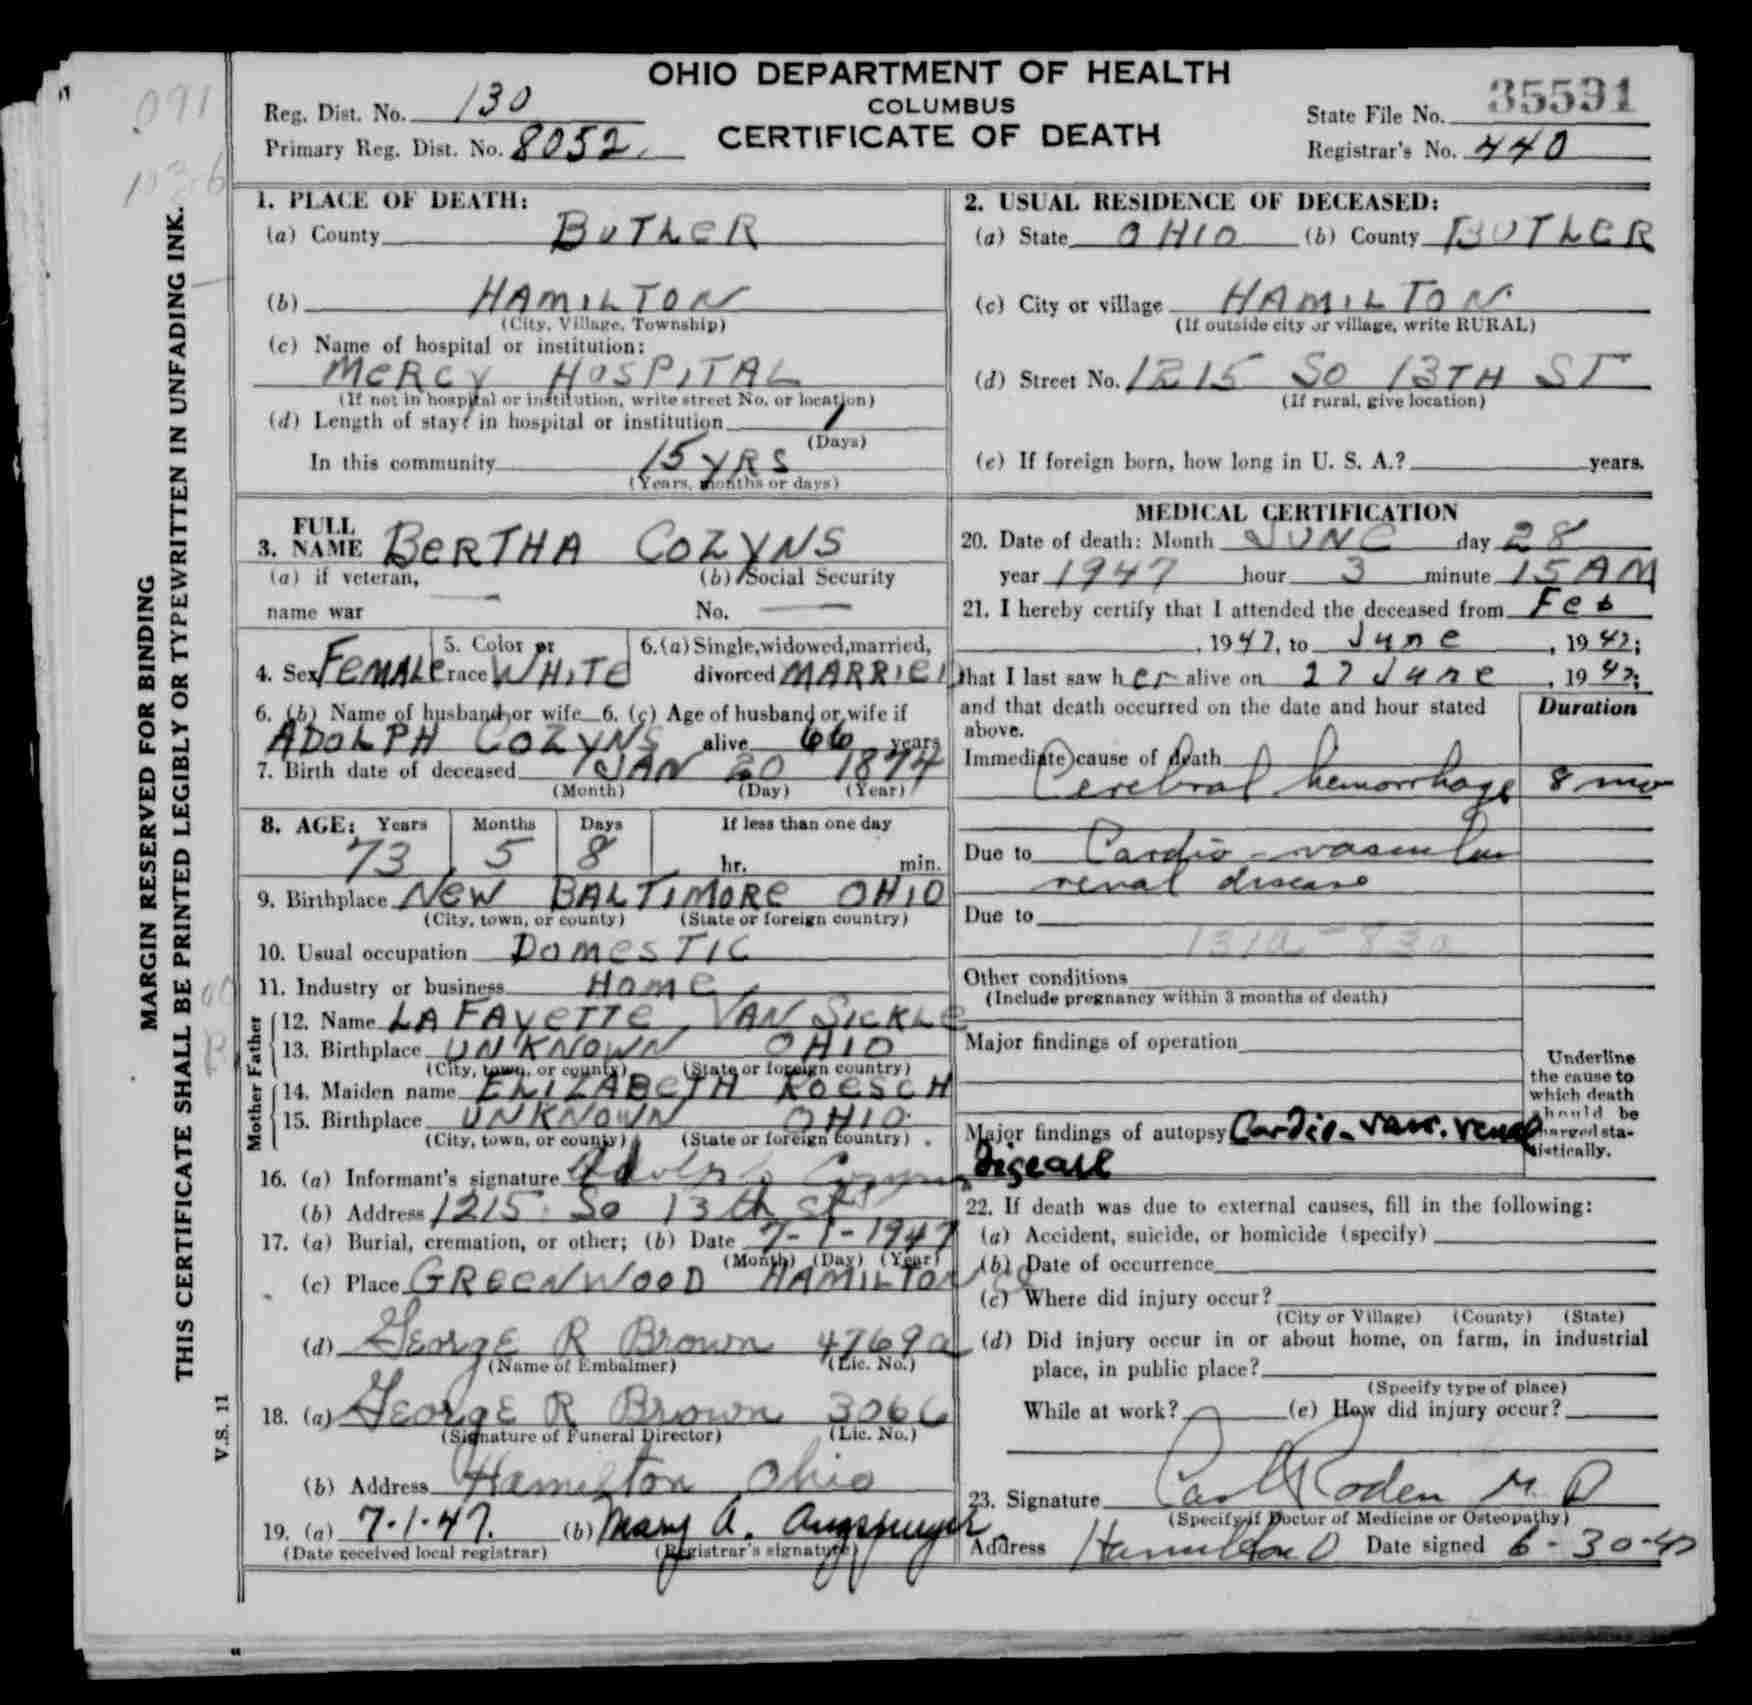 OHIO DEPARTMENT OF HEALTH
COLUMBUS
CERTIFICATE OF DEATH
Reg. Dist. No. 130
Primary Reg. Dist. No. 8052.
State File No. 35591
Registrar's No. 440
091
MARGIN RESERVED FOR BINDING
THIS CERTIFICATE SHALL BE PRINTED LEGIBLY OR TYPEWRITTEN IN UNFADING INK.
V.S. 11
1. PLACE OF DEATH:
(a) County BUTLER
(b) HAMILTON
(City, Village, Township)
(c) Name of hospital or institution:
MERCY HOSPITAL
(If not in hospital or institution, write street No. or location)
(d) Length of stay: in hospital or institution 1
(Days)
In this community 15 YRS
(Years, months or days)
2. USUAL RESIDENCE OF DECEASED:
(a) State OHIO (b) County BUTLER
(c) City or village HAMILTON
(If outside city or village, write RURAL)
(d) Street No. 1215 SO 13TH ST
(If rural, give location)
(e) If foreign born, how long in U. S. A.? years.
3. FULL NAME BERTHA COZYNS
(a) if veteran, name war —
(b) Social Security No. —
4. Sex FEMALE
5. Color or race WHITE
6. (a) Single, widowed, married, divorced MARRIED
6. (b) Name of husband or wife 6. (c) Age of husband or wife if
ADOLPH COZYNS alive 66 years
7. Birth date of deceased JAN 20 1874
(Month) (Day) (Year)
8. AGE: Years Months Days If less than one day
73 5 8 hr. min.
9. Birthplace NEW BALTIMORE OHIO
(City, town, or county) (State or foreign country)
10. Usual occupation DOMESTIC
11. Industry or business HOME
Father
12. Name LA FAYETTE VAN SICKLE
13. Birthplace UNKNOWN OHIO
(City, town, or county) (State or foreign country)
Mother
14. Maiden name ELIZABETH ROESCH
15. Birthplace UNKNOWN OHIO
(City, town, or county) (State or foreign country)
16. (a) Informant's signature Adolph
(b) Address 1215 So 13th St
17. (a) Burial, cremation, or other; (b) Date 7-1-1947
(Month) (Day) (Year)
(c) Place GREENWOOD HAMILTON
(d) George R Brown 4769a
(Name of Embalmer) (Lic. No.)
18. (a) George R Brown 3066
(Signature of Funeral Director) (Lic. No.)
(b) Address Hamilton Ohio
19. (a) 7-1-47. (b) Mary A. Augspurger
(Date received local registrar) (Registrar's signature)
MEDICAL CERTIFICATION
20. Date of death: Month JUNE day 28
year 1947 hour 3 minute 15 AM
21. I hereby certify that I attended the deceased from Feb
, 1947, to June , 1947;
that I last saw her alive on 27 June , 1947;
and that death occurred on the date and hour stated above.
Duration
Immediate cause of death
Cerebral hemorrhage 8 mo
Due to Cardio-vascular
renal disease
Due to
131a-83a
Other conditions
(Include pregnancy within 3 months of death)
Major findings of operation
Underline the cause to which death should be charged statistically.
Major findings of autopsy Cardio-vasc. renal
disease
22. If death was due to external causes, fill in the following:
(a) Accident, suicide, or homicide (specify)
(b) Date of occurrence
(c) Where did injury occur?
(City or Village) (County) (State)
(d) Did injury occur in or about home, on farm, in industrial
place, in public place?
(Specify type of place)
While at work? (e) How did injury occur?
23. Signature Carl Roden M. D
(Specify if Doctor of Medicine or Osteopathy)
Address Hamilton O Date signed 6-30-47